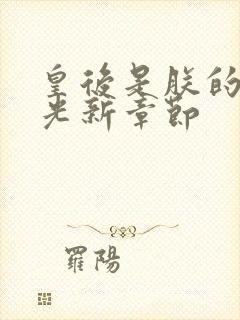 皇後是朕的
光新章節
羅陽